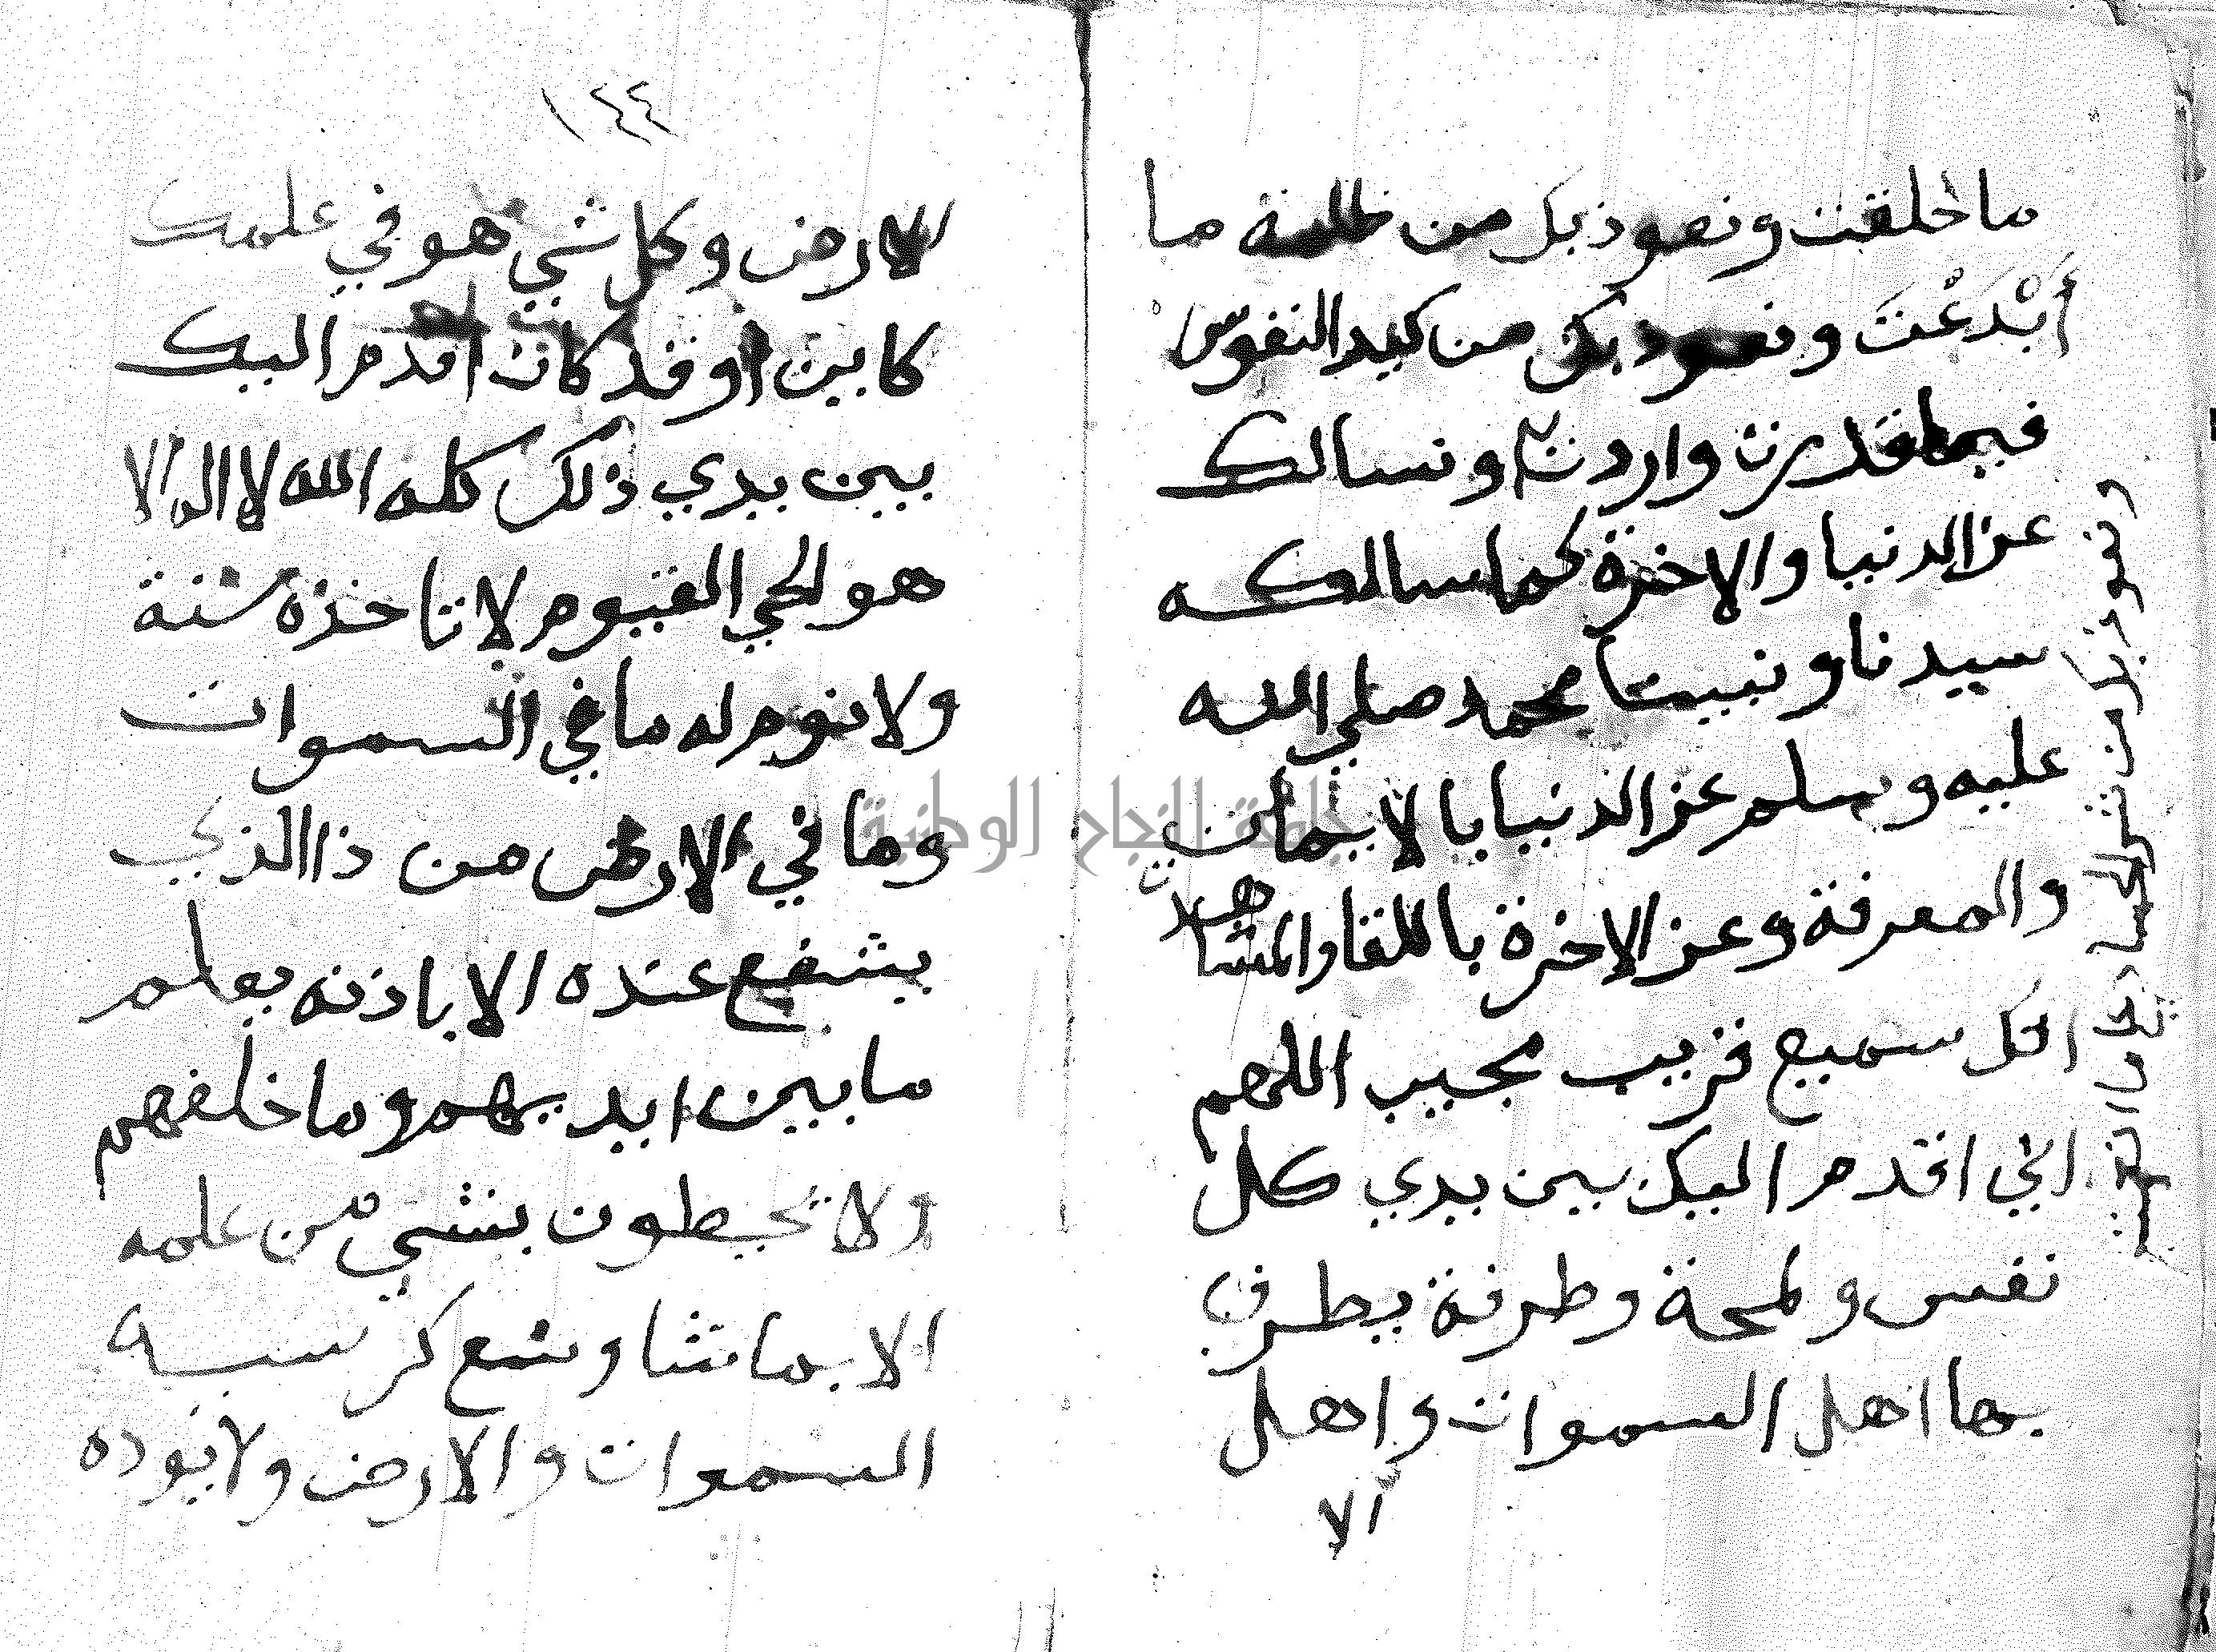 ما خلقت ونعوذ بك من ظلمة ما
أَبْدَعْتَ ونعوذ بك من كيد النفوس
فيما قدرت واردت ونسالك
عز الدنيا والاخرة كما سالكه
سيدنا ونبينا محمد صلي الله
عليه وسلم عز الدنيا بالايمان
والمعرفة وعز الاخرة باللقا والمشاهدة
انك سميع قريب مجيب اللهم
اني اقدم اليك بين يدي كل
نفس ولمحة وطرفة يطرف
بها اهل السموات واهل
الا
ونعوذ بك من شر
١٤٤
الارض وكل شي هو في علمك
كاين او قد كان اقدم اليك
بين يدي ذلك كله الله لا اله الا
هو الحي القيوم لا تاخذه سنة
ولا نوم له ما في السموات
وما في الارض من ذا الذي
يشفع عنده الا باذنه يعلم
ما بين ايديهم وما خلفهم
ولا يحيطون بشي من علمه
الا بما شا وسع كرسيه
السموات والارض ولا يوده
جامعة النجاح الوطنية